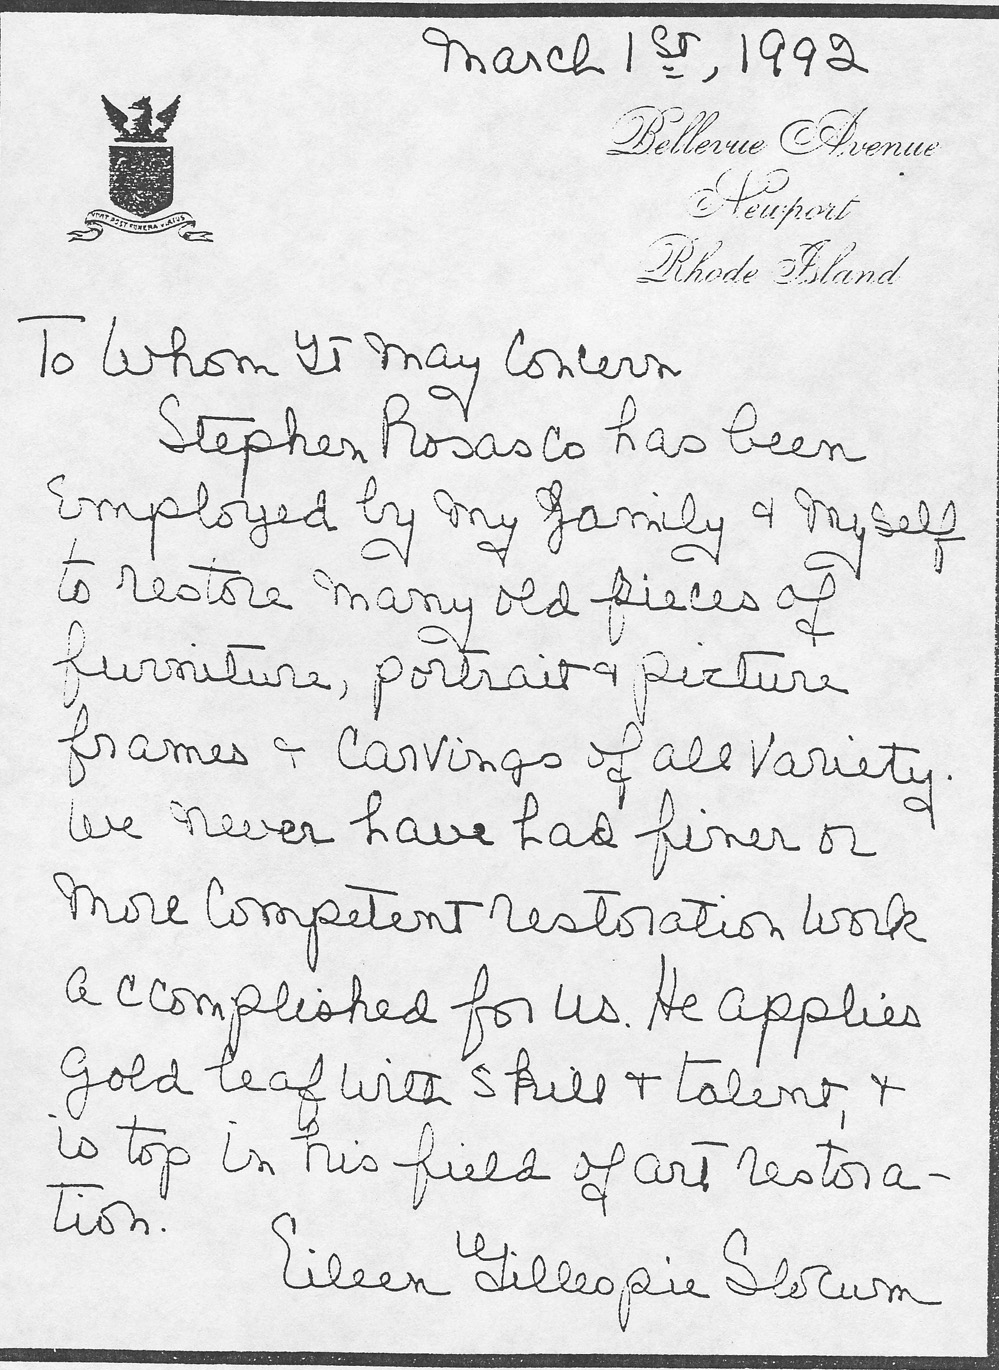 March 1st, 1992
Bellevue Avenue
Newport
Rhode Island
VIVIT POST FUNERA VIRTUS
To Whom It May Concern
Stephen Rosasco has been
Employed by my family & myself
to restore many old pieces of
furniture, portrait & picture
frames & carvings of all variety.
We never have had finer or
more competent restoration work
accomplished for us. He applies
Gold leaf with skill & talent, &
is top in his field of art restora-
tion.
Eileen Gillespie Slocum